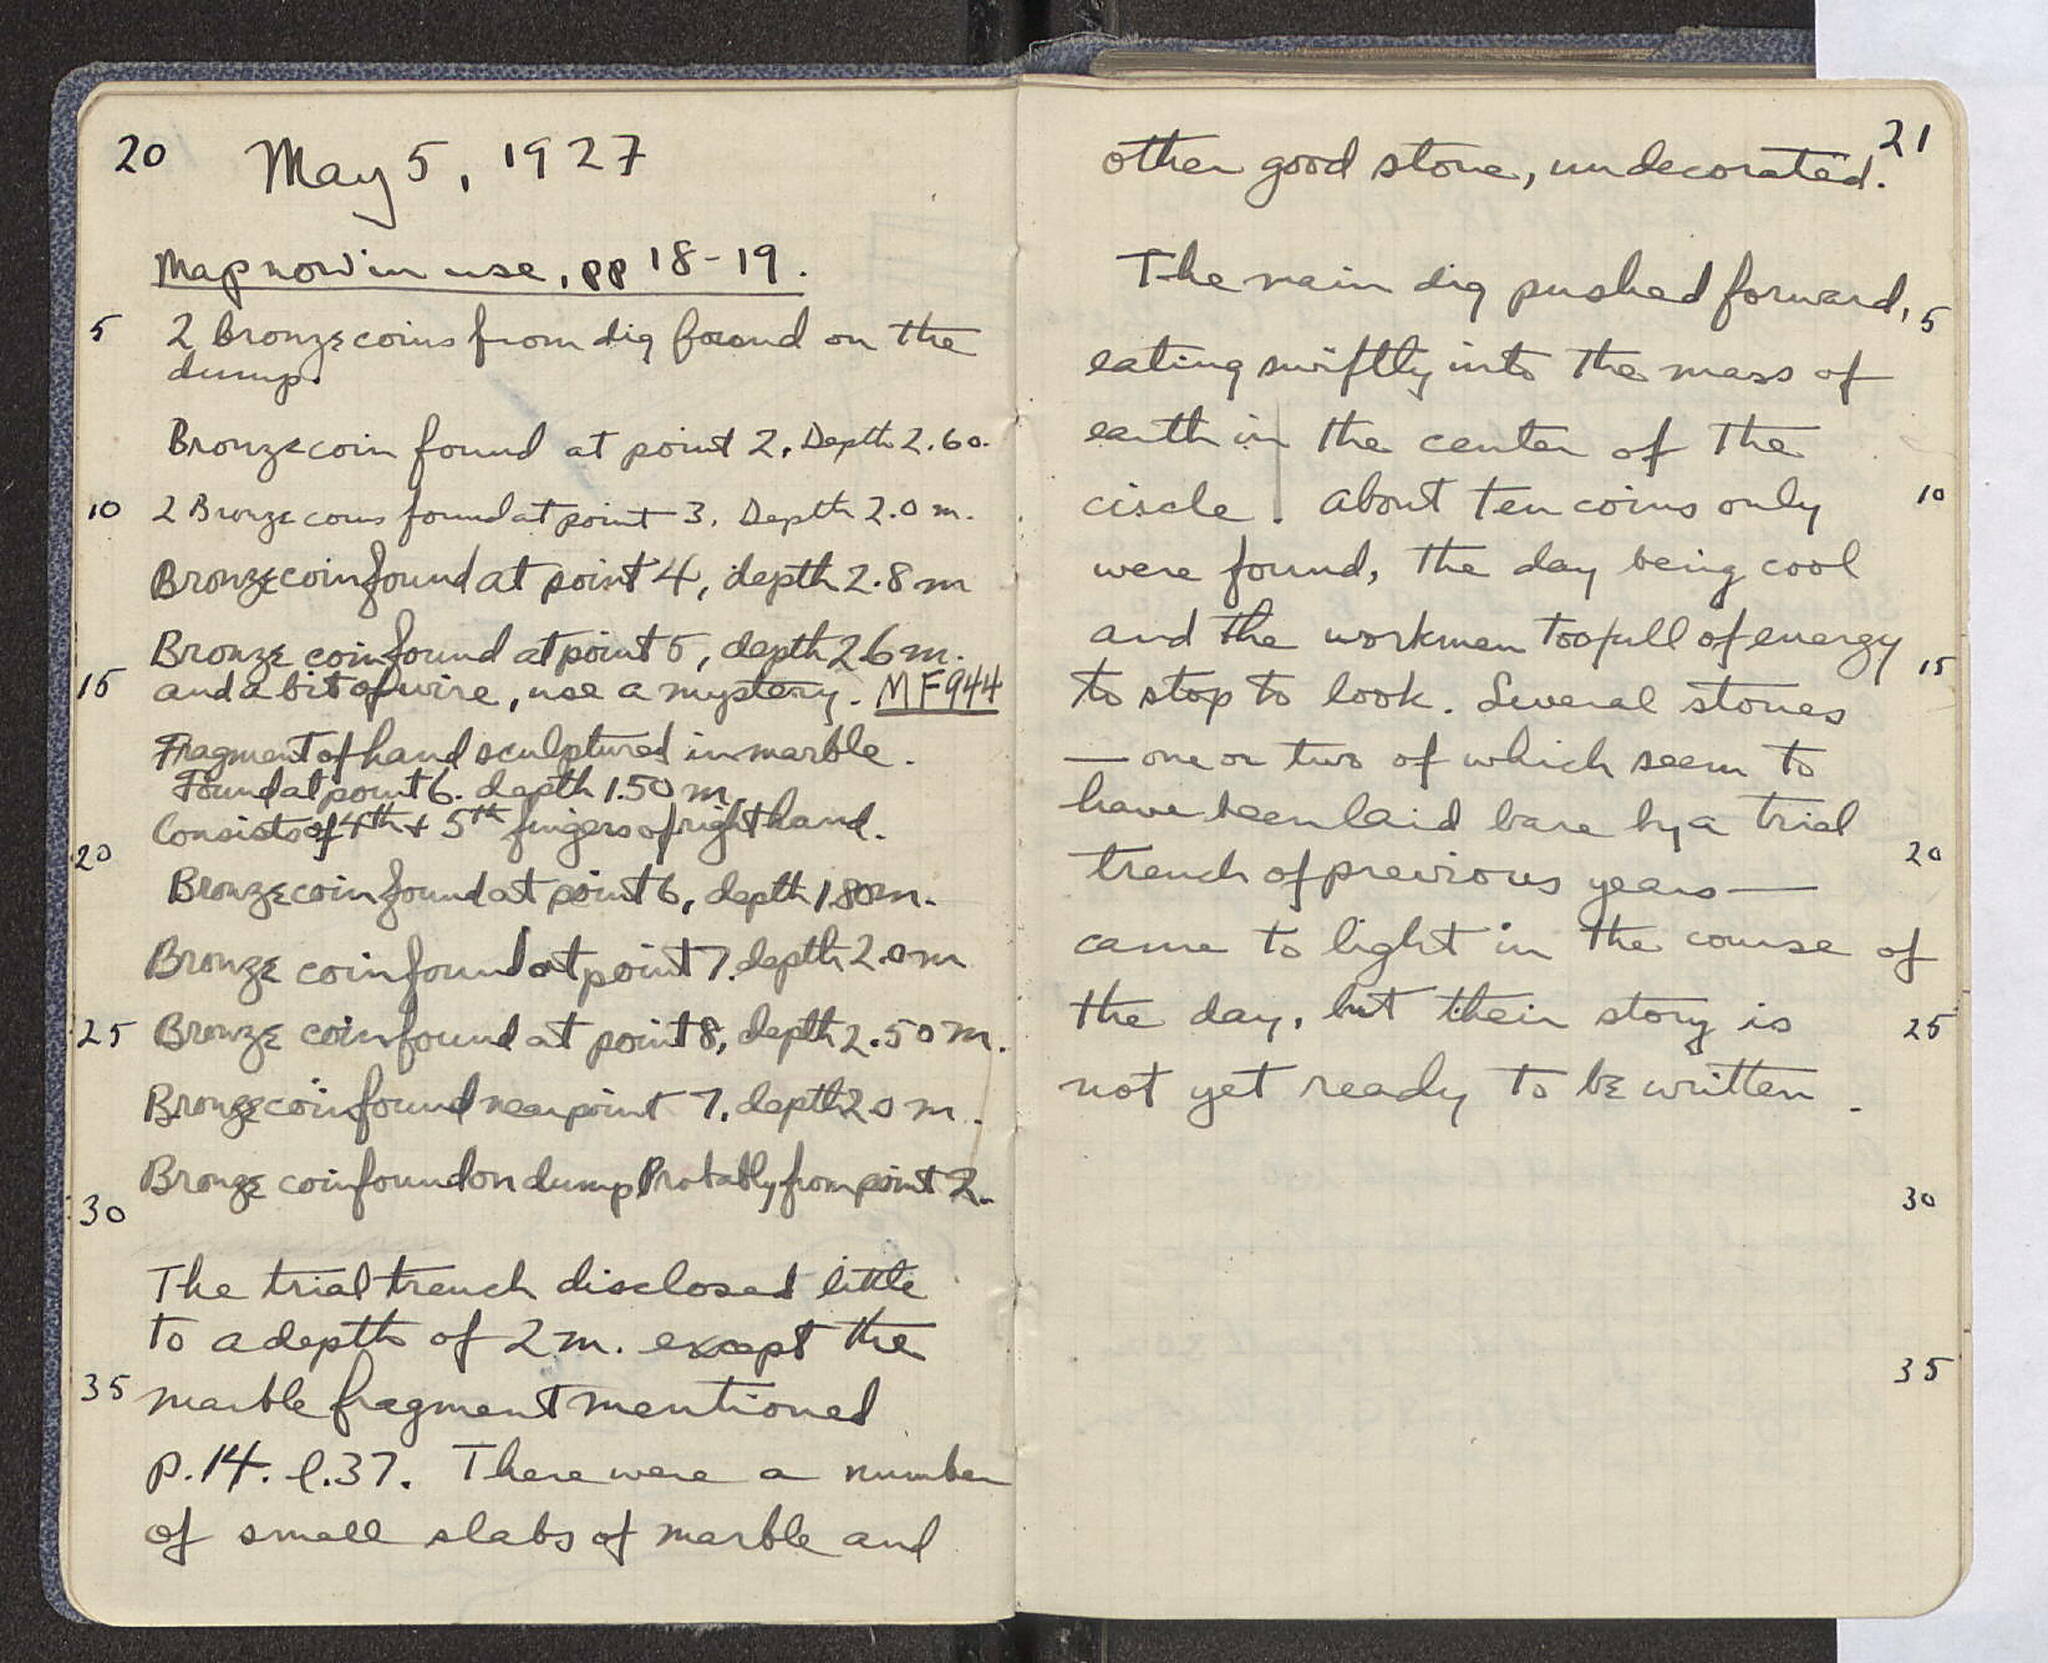 20 May 5, 1927
Map now in use, pp 18-19.
5 2 bronze coins from dig found on the
dump.
Bronze coin found at point 2. Depth 2.60.
10 2 Bronze coins found at point 3. Depth 2.0 m.
Bronze coin found at point 4, depth 2.8 m
Bronze coin found at point 5, depth 2.6 m.
15 and a bit of wire, use a mystery. MF944
Fragment of hand sculptured in marble.
Found at point 6. depth 1.50 m.
Consists of 4th + 5th fingers of right hand.
20
Bronze coin found at point 6, depth 1.80 m.
Bronze coin found at point 7. depth 2.0 m
25 Bronze coin found at point 8, depth 2.50 m.
Bronze coin found near point 7. depth 2.0 m.
Bronze coin found on dump Probably from point 2.
30
The trial trench disclosed little
to a depth of 2 m. except the
35 marble fragment mentioned
p. 14. l. 37. There were a number
of small slabs of marble and
21
other good stone, undecorated.
The main dig pushed forward, 5
eating swiftly into the mass of
earth in the center of the
circle. About ten coins only 10
were found, the day being cool
and the workmen too full of energy
to stop to look. Several stones 15
— one or two of which seem to
have been laid bare by a trial
trench of previous years — 20
came to light in the course of
the day, but their story is 25
not yet ready to be written.
30
35